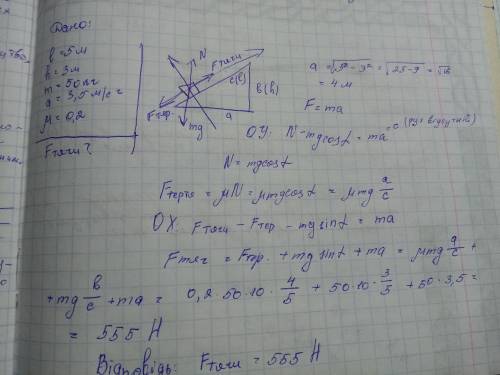 Дано:
l = 5 м
h = 3 м
m = 50 кг
a = 3,5 м/с²
μ = 0,2
Fтяги ?
N
Fтяги
c(l)
b(h)
Fтер.
mg
a
a = √5² - 3² = √25 - 9 = √16
= 4 м
F = ma
OY: N - mgcosα = ma = 0 (рух відсутній)
N = mgcosα
Fтертя = μN = μmgcosα = μmg a/c
OX: Fтяги - Fтер - mgsinα = ma
Fтяг = Fтер. + mg sinα + ma = μmg a/c +
+ mg b/c + ma = 0,2 · 50 · 10 · 4/5 + 50 · 10 · 3/5 + 50 · 3,5 =
= 555 Н
Відповідь: Fтяги = 555 Н